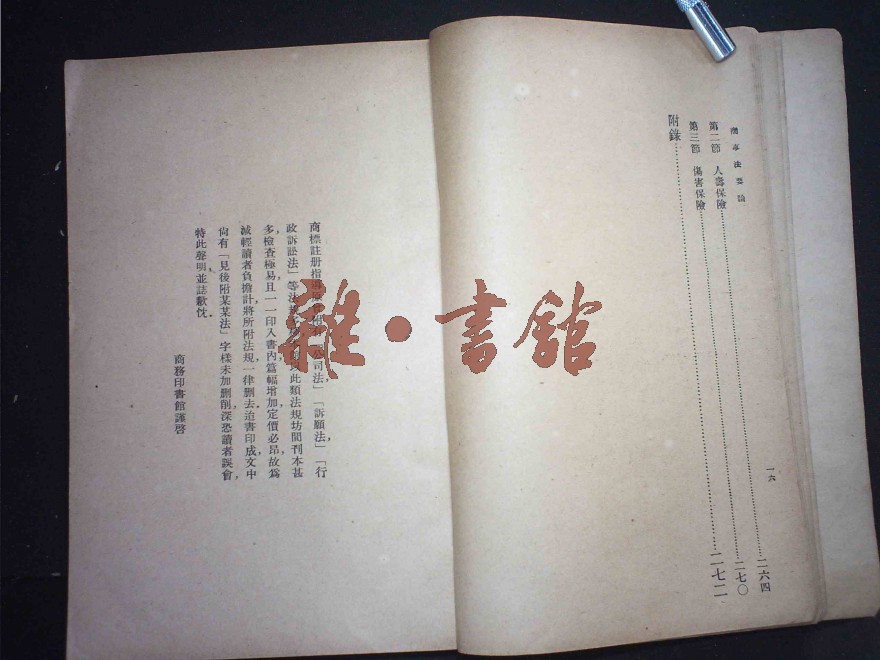 商事法要論
一六
第二節 人壽保險……二六四
第三節 傷害保險……二七〇
附錄……二七二
商標註册指導有「公司法」，「訴願法」，「行
政訴訟法」等法以此類法規坊間刊本甚
多，檢查極易，且一一印入書內，篇幅增加，定價必昂，故爲
減輕讀者負擔計，將所附法規，一律删去。迨書印成，文中
尙有「見後附某某法」字樣，未加删削，深恐讀者誤會，
特此聲明，並誌歉忱。
商務印書館謹啓
雜·書館